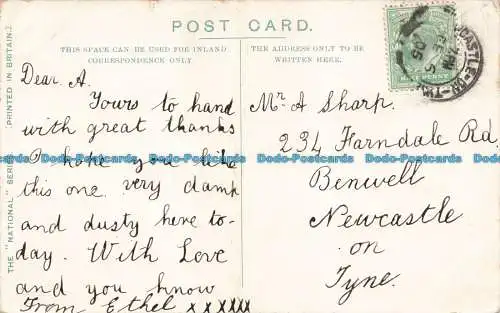 POST CARD.
THIS SPACE CAN BE USED FOR INLAND
CORRESPONDENCE ONLY
THE ADDRESS ONLY TO BE
WRITTEN HERE.
Dear A.
Yours to hand
with great thanks
I hope you like
this one. very damp
and dusty here to-
day. With Love
and you know
From Ethel x x x x x x
Mr A Sharp.
234 Farndale Rd.
Benwell
Newcastle
on
Tyne.
THE "NATIONAL" SERIES
[PRINTED IN BRITAIN.]
HALF PENNY
05
Dodo-Postcards Dodo-Postcards Dodo-Postcards Dodo-Postcards Dodo-Postcards